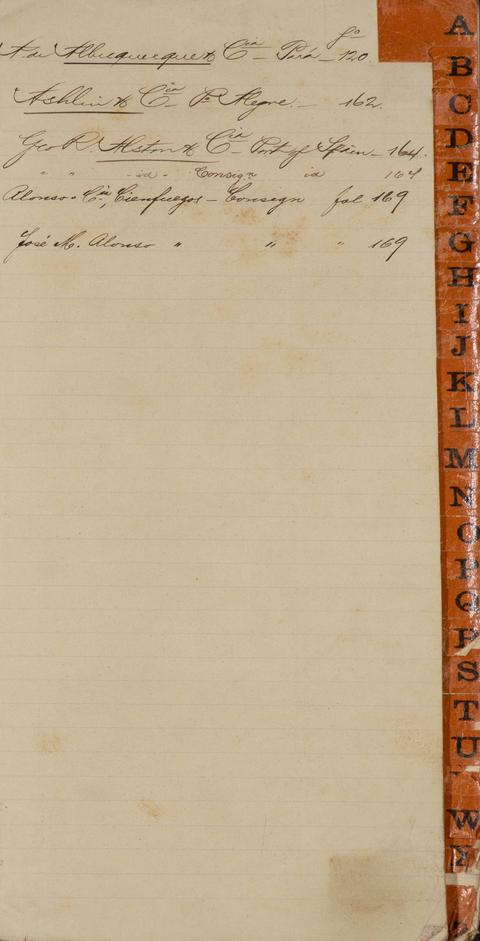 fo
A. de Albuquerque & Cia — Pará — 120
Ashlin & Cia — P. Alegre. — 162.
Geo R. Alston & Cia — Port of Spain — 164.
" " - id - Consign id 164
Alonso & Cia, Cienfuegos — Consign fol 169
José M. Alonso " " " 169
A
B
C
D
E
F
G
H
I
J
K
L
M
N
O
P
Q
R
S
T
U
W